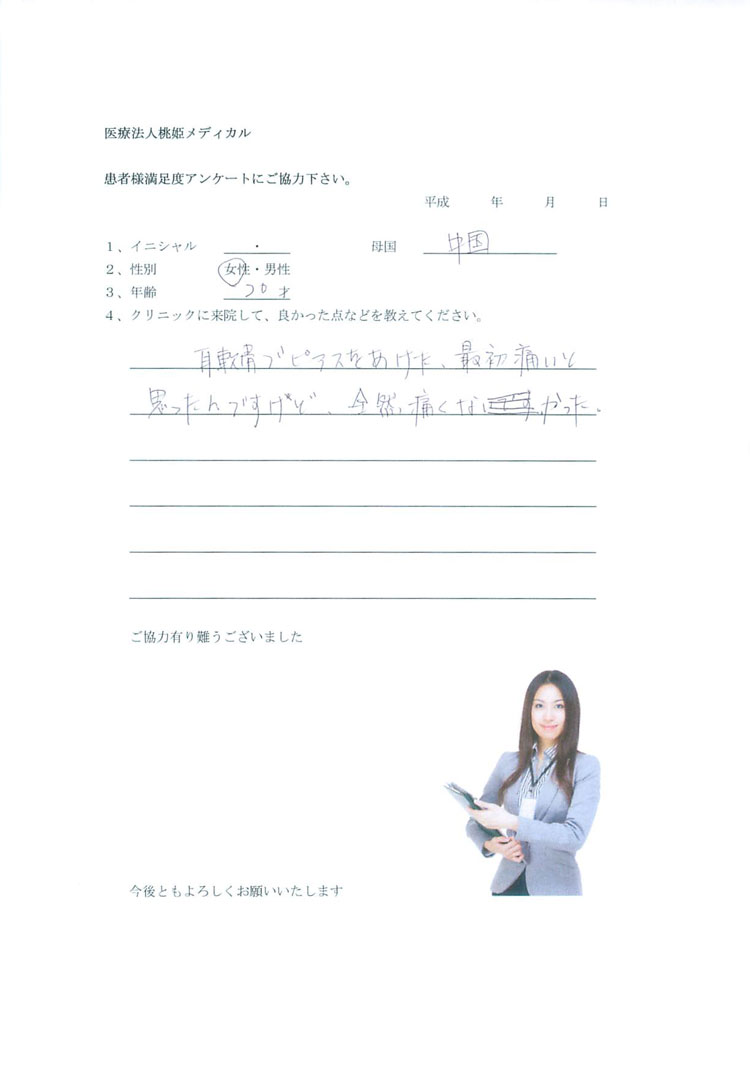 医療法人桃姫メディカル
患者様満足度アンケートにご協力下さい。
平成　　　年　　　月　　　日
１、イニシャル　　・　　母国　中国
２、性別　　女性・男性
３、年齢　　20 才
４、クリニックに来院して、良かった点などを教えてください。
耳軟骨でピアスをあけた、最初痛いと
思ったんですけど、全然、痛くなかった。
ご協力有り難うございました
今後ともよろしくお願いいたします